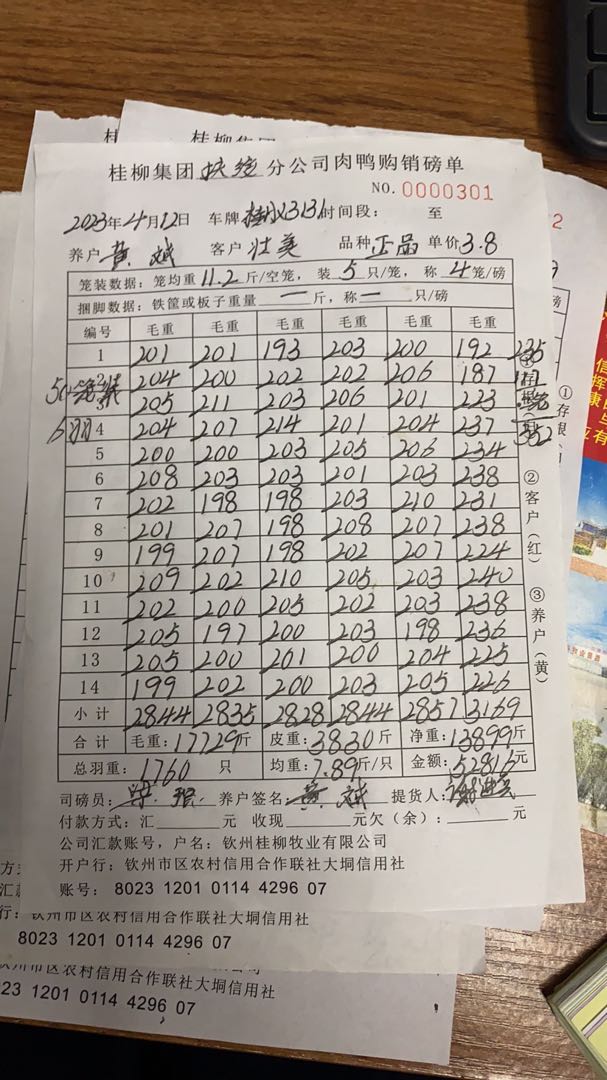 桂柳集团扶绥分公司肉鸭购销磅单
NO.0000301
2023年4月12日 车牌 时间段： 至
养户 黄斌 客户 壮美 品种 正品 单价3.8
笼装数据：笼均重11.2斤/空笼，装5只/笼，称4笼/磅
捆脚数据：铁筐或板子重量 一 斤，称一 只/磅
编号 毛重 毛重 毛重 毛重 毛重 毛重
1 201 201 193 203 200 192 235
2 204 200 202 202 206 187
3 205 211 203 206 201 223
4 204 207 214 201 204 237 352
5 200 200 203 205 206 234
6 208 203 203 201 203 238
7 202 198 198 203 210 231
8 201 207 198 208 207 238
9 199 207 198 202 207 224
10 209 202 210 205 203 240
11 202 200 205 202 203 238
12 205 197 200 203 198 236
13 205 200 201 200 204 225
14 199 202 200 203 205 226
小计 2844 2835 2828 2844 2857 3169
合计 毛重：17729斤 皮重：3830斤 净重：13899斤
总羽重：1760 只 均重：7.89斤/只 金额：52816元
司磅员： 养户签名：黄斌 提货人：
付款方式：汇 元 收现 元欠（余）： 元
公司汇款账号，户名：钦州桂柳牧业有限公司
开户行：钦州市区农村信用合作联社大垌信用社
账号： 8023 1201 0114 4296 07
6羽
②客户（红）
③养户（黄）
行：钦州市区农村信用合作联社大垌信用社
8023 1201 0114 4296 07
钦州市区农村信用合作联社大垌信用社
23 1201 0114 4296 07